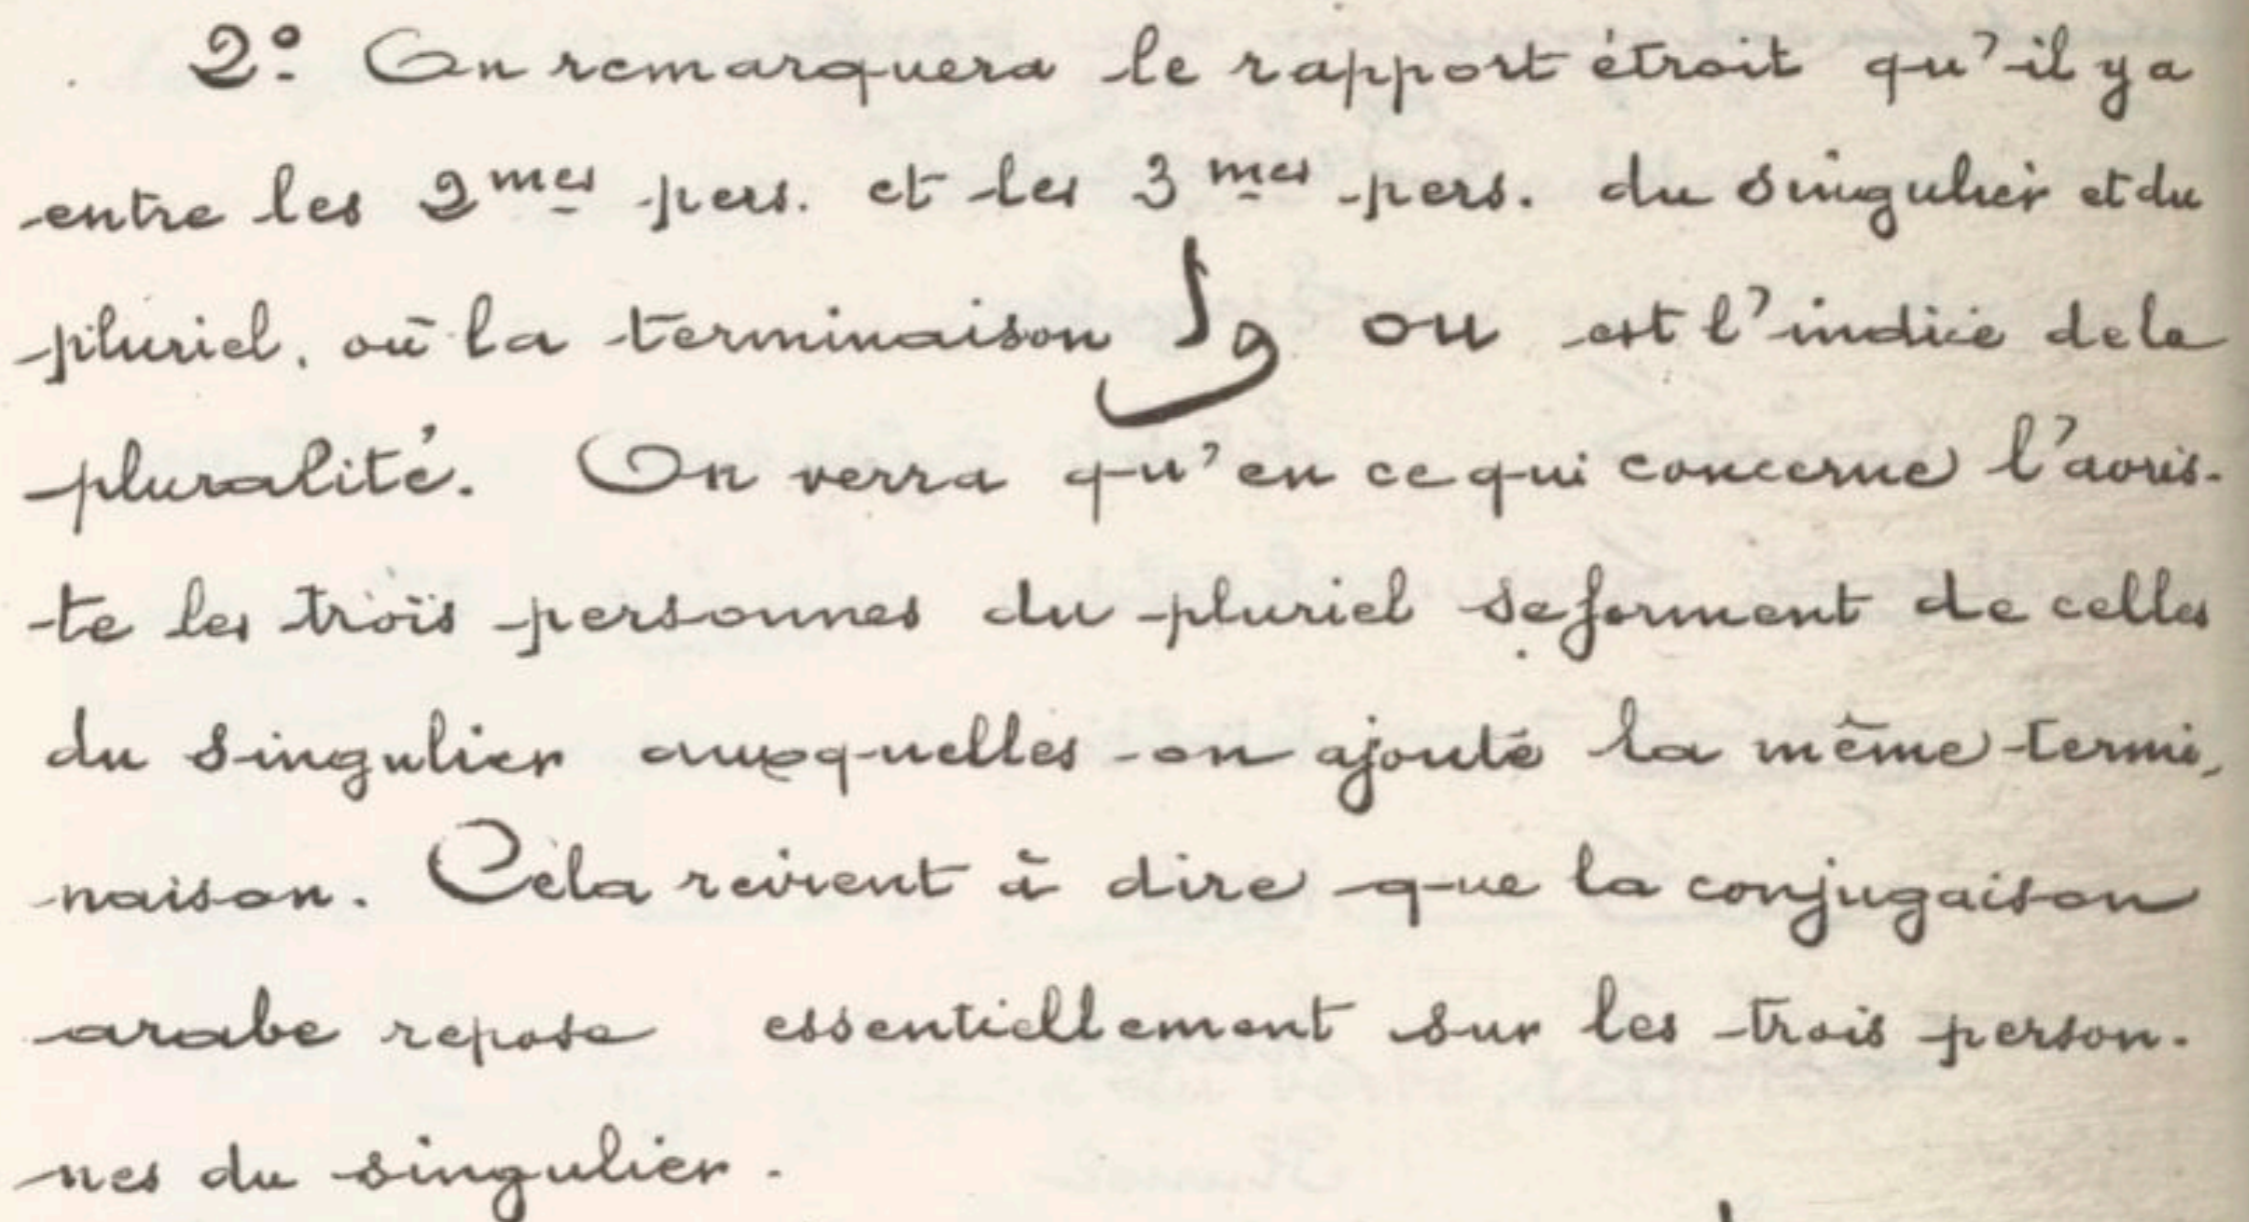 2º On remarquera le rapport étroit qu'il y a
entre les 2mes pers. et les 3mes pers. du singulier et du
pluriel, où la terminaison وا ou est l'indice de la
pluralité. On verra qu'en ce qui concerne l'aoris-
-te les trois personnes du pluriel se forment de celles
du singulier auxquelles on ajoute la même termi-
naison. Cela revient à dire que la conjugaison
arabe repose essentiellement sur les trois person-
nes du singulier.